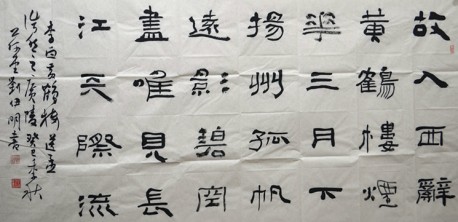 故人西辭
黃鶴樓煙
華三月下
揚州孤帆
遠影碧空
盡唯見長
江天際流
李白黃鶴樓送孟
浩然之廣陵癸巳季秋
劉伊明書